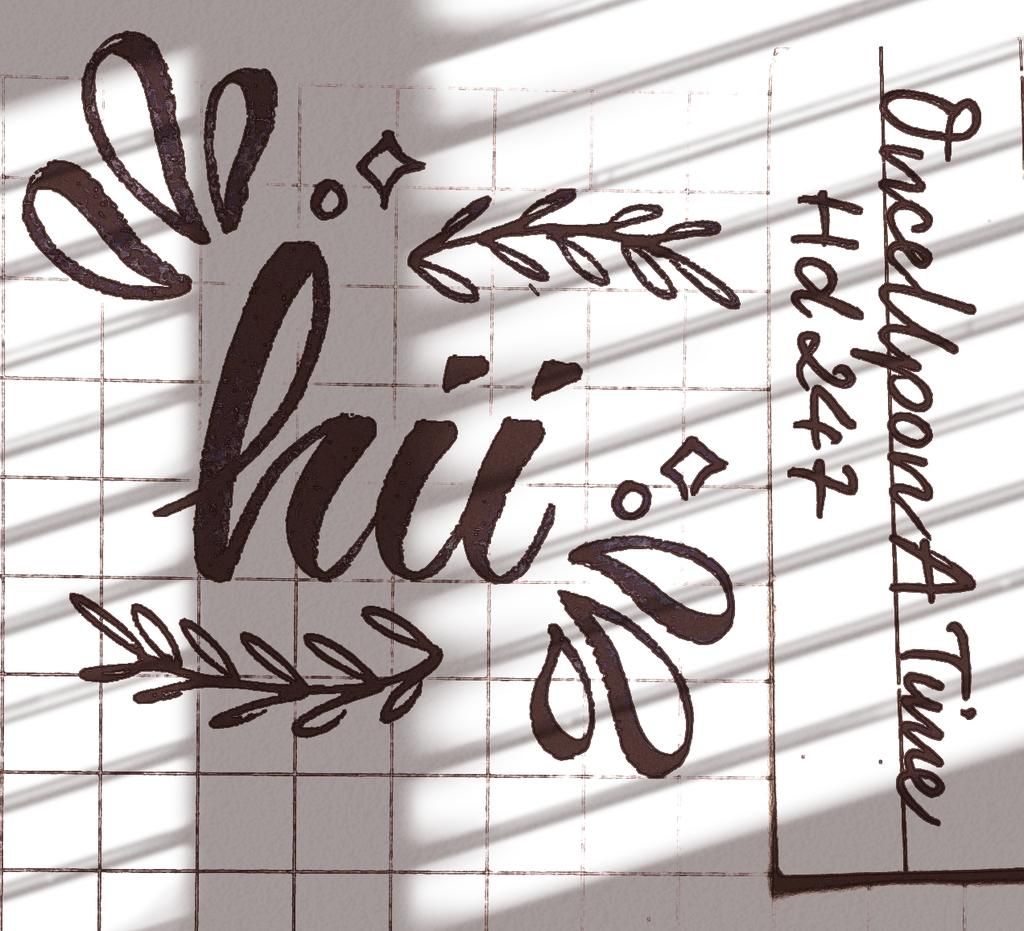 hii
OnceUponA Time
Hd247